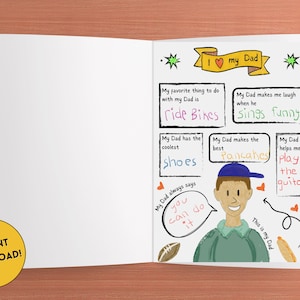 I ❤ my Dad
My favorite thing to do
with my Dad is
ride Bikes
My Dad makes me laugh
when he
sings funny
My Dad has the
coolest
shoes
My Dad makes the
best
Pancakes
My Dad
helps me
play
the
guita
My Dad always says
you
can do
it
This is my Dad
NT
OAD!